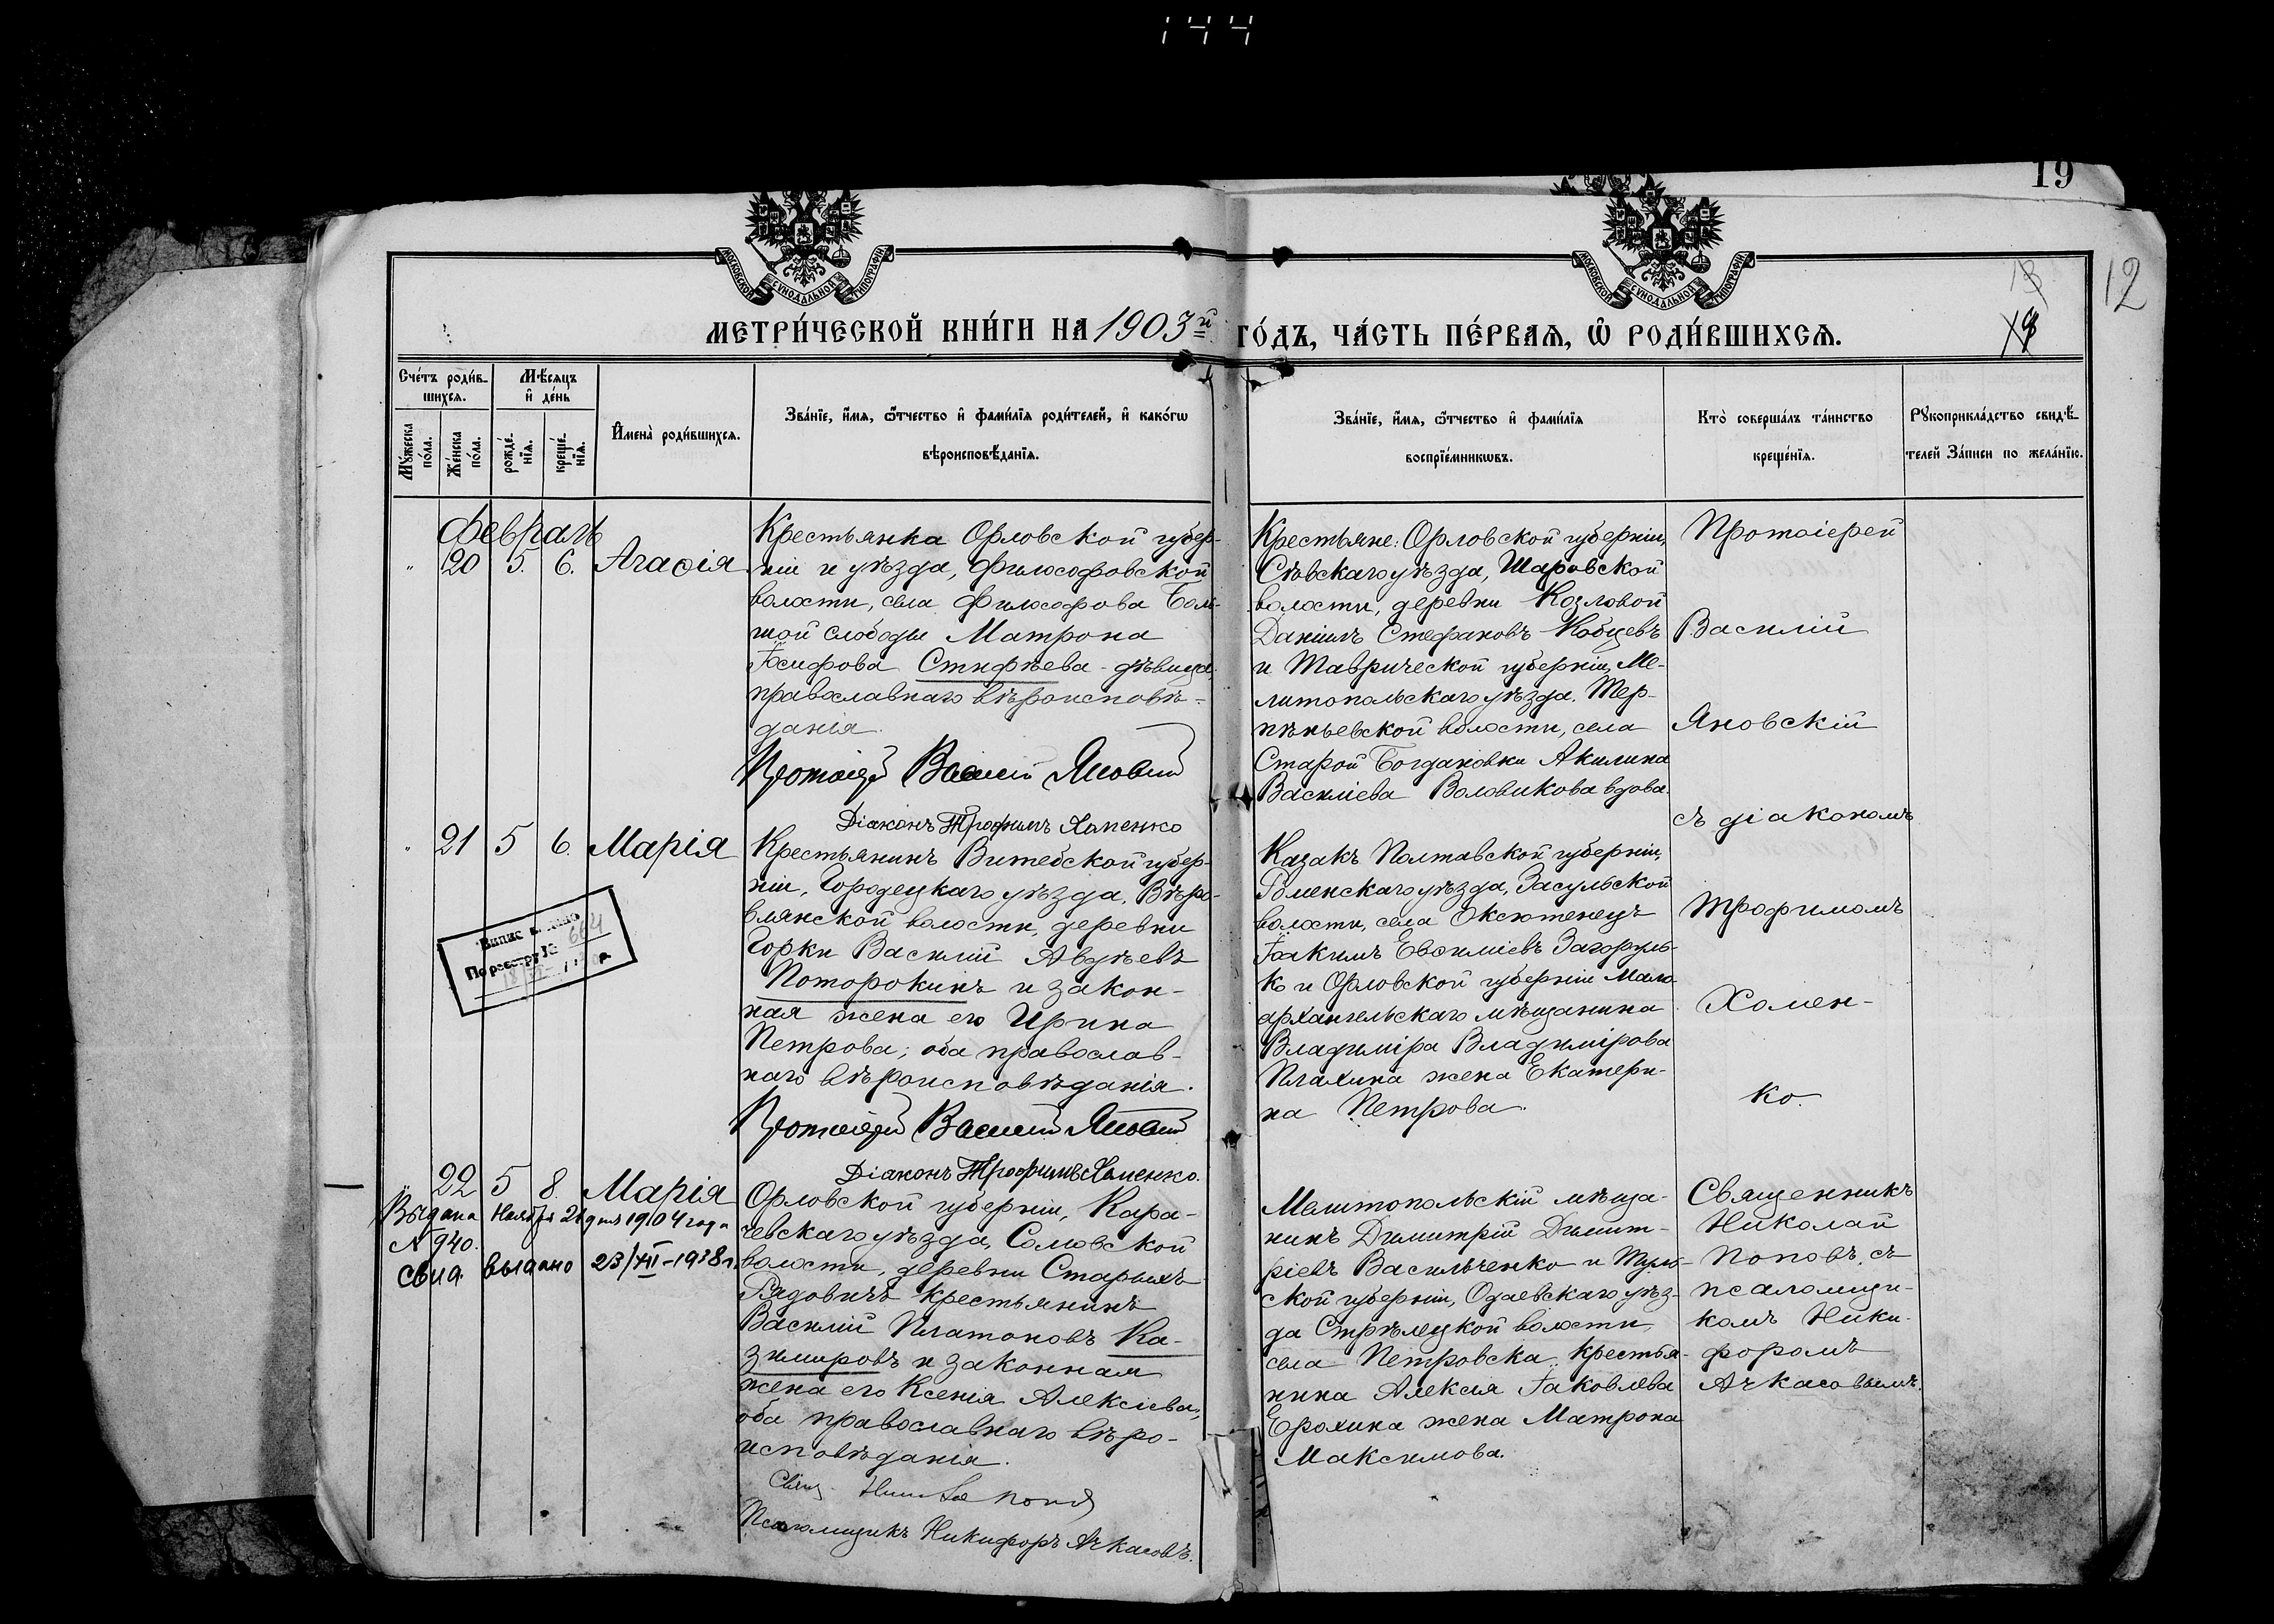 144
19
12
МОСКОВСКОЙ СѴНОДАЛЬНОЙ ТИПОГРАФІИ
МОСКОВСКОЙ СѴНОДАЛЬНОЙ ТИПОГРАФІИ
МЕТРИ́ЧЕСКОЙ КНИ́ГИ НА 1903й ГО́ДЪ, ЧА́СТЬ ПЕ́РВАѦ, Ѽ РОДИ́ВШИХСѦ.
Сче́тъ роди́в-
шихсѧ.
Мꙋ́жеска по́ла.
Же́нска по́ла.
Мѣ́сѧцъ
и҆ де́нь
рожде́-нїѧ.
креще́-нїѧ.
И҆мена̀ роди́вшихсѧ.
Зва́нїе, и҆́мѧ, ѻ҆́тчество и҆ фами́лїѧ роди́телей, и҆ како́гѡ
вѣроисповѣ́данїѧ.
Зва́нїе, и҆́мѧ, ѻ҆́тчество и҆ фами́лїѧ
воспрїе́мникѡвъ.
Кто̀ соверша́лъ та́инство
креще́нїѧ.
Рꙋкоприкла́дство свидѣ́-
телей За́писи по жела́нїю.
Февраль
20 5. 6. Агаѳія
Крестьянка Орловской губер-
ніи и уѣзда, Философовской
волости, села Философова Боль-
шой слободы Матрона
Іосифова Стифѣева - дѣвица,
православнаго вѣроисповѣ-
данія.
Протоіерей Василій Яновскій
Діаконъ Трофимъ Хоменко
Крестьяне: Орловской губерніи,
Сѣвскаго уѣзда, Шаровской
волости, деревни Козловой
Даніилъ Стефановъ Кобцевъ
и Таврической губерніи, Ме-
литопольскаго уѣзда. Тер-
пѣньевской волости, села
Старой Богдановки Акилина
Василіева Воловикова вдова.
Протоіерей
Василій
Яновскій
съ діакономъ
Трофимомъ
Хомен-
ко.
21 5 6. Марія
Крестьянинъ Витебской губер-
ніи, Городецкаго уѣзда, Вѣро-
влянской волости, деревни
Горки Василій Авдѣевъ
Поторокинъ и закон-
ная жена его Ирина
Петрова; оба православ-
наго вѣроисповѣданія.
Протоіерей Василій Яновскій
Діаконъ Трофимъ Хоменко.
Казакъ Полтавской губерніи,
Роменскаго уѣзда, Засульской
волости, села Оксютенецъ
Іоакимъ Евсиліевъ Загоруль-
ко и Орловской губерніи Мало-
архангельскаго мѣщанина
Владиміра Владимірова
Плахина жена Екатери-
на Петрова.
По реестру № 664
22 5 8. Марія
Выдана Ноября 21 дня 1904 года
№ 940.
Свид. выдано 23/VII-1938 г.
Орловской губерніи, Кара-
чевскаго уѣзда, Соловской
волости, деревни Старыхъ
Рядовичъ крестьянинъ
Василій Платоновъ Ка-
зимировъ и законная
жена его Ксенія Алексіева,
оба православнаго вѣро-
исповѣданія.
Свящ. Николай Поповъ
Псаломщикъ Никифоръ Ачкасовъ.
Мелитопольскій мѣща-
нинъ Димитрій Димит-
ріевъ Васильченко и Туль-
ской губерніи, Одаевскаго уѣз-
да Стрѣлецкой волости,
села Петровска крестья-
нина Алексія Іаковлева
Ерохина жена Матрона
Максимова.
Священникъ
Николай
Поповъ, съ
псаломщи-
комъ Ники-
форомъ
Ачкасовымъ.